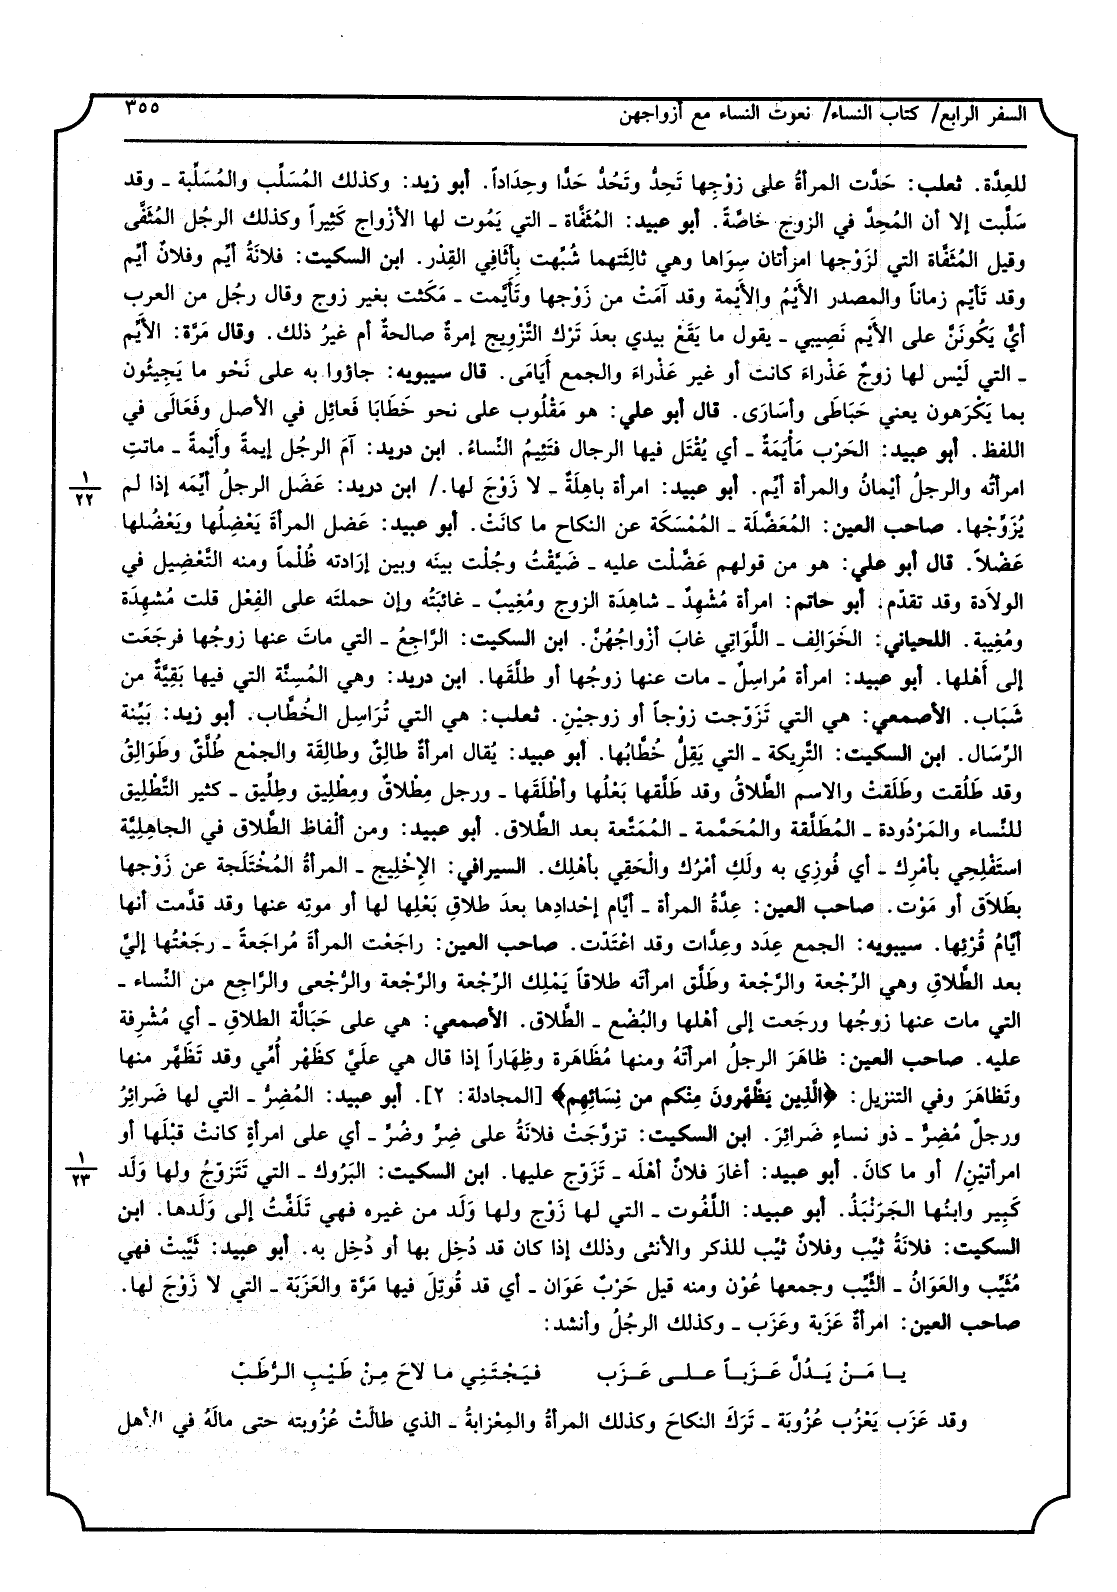 السفر الرابع/ كتاب النساء/ نعوت النساء مع أزواجهن
٣٥٥
للعِدَّة. ثعلب: حَدَّت المرأةُ على زوْجِها تَحِدُّ وتَحُدُّ حَدًّا وحِدَاداً. أبو زيد: وكذلك المُسَلِّب والمُسَلِّبة ـ وقد
سَلَّبت إلا أن المُحِدَّ في الزوج خاصَّةً. أبو عبيد: المُثَفَّاة ـ التي يَمُوت لها الأزْواج كَثِيراً وكذلك الرجُل المُثَفَّى
وقيل المُثَفَّاة التي لزَوْجِها امرأتان سِوَاها وهي ثالِثَتهما شُبِّهت بِأَثَافِي القِدْر. ابن السكيت: فلانَةُ أيِّم وفلانٌ أيِّم
وقد تَأيَّم زماناً والمصدر الأَيْمُ والأَيْمة وقد آمَتْ من زَوْجها وتَأَيَّمت ـ مَكَثت بغير زوج وقال رجُل من العرب
أيٌّ يَكُونَنَّ على الأَيْم نَصِيبي ـ يقول ما يَقَعُ بيدي بعدَ تَرْك التَّزْوِيج إمرةٌ صالحةٌ أم غيرُ ذلك. وقال مَرَّة: الأَيِّم
ـ التي لَيْس لها زوجٌ عَذْراءَ كانت أو غير عَذْراءَ والجمع أَيَامَى. قال سيبويه: جاؤوا به على نَحْو ما يَجِيئُون
بما يَكْرَهون يعني حَبَاطَى وأسَارَى. قال أبو علي: هو مَقْلُوب على نحو خَطَايَا فَعائِل في الأصل وفَعَالَى في
اللفظ. أبو عبيد: الحَرْب مَأْيَمَةٌ ـ أي يُقْتَل فيها الرجال فتَئِيمُ النِّساءُ. ابن دريد: آمَ الرجُل إيمةً وأَيْمةً ـ ماتتِ
امرأتُه والرجلُ أيْمانُ والمرأة أيِّم. أبو عبيد: امرأة باهِلَةٌ ـ لا زَوْجَ لها./ ابن دريد: عَضَل الرجلُ أيِّمَه إذا لم
١
٢٢
يُزَوِّجْها. صاحب العين: المُعَضَّلَة ـ المُمْسَكَة عن النكاح ما كانَتْ. أبو عبيد: عَضل المرأةَ يَعْضِلُها ويَعْضُلها
عَضْلاً. قال أبو علي: هو من قولهم عَضَّلْت عليه ـ ضَيَّقْتُ وحُلْت بينَه وبين إرَادته ظُلْماً ومنه التَّعْضِيل في
الولاَدة وقد تقدّم. أبو حاتم: امرأة مُشْهِدٌ ـ شاهِدَة الزوج ومُغِيبٌ ـ غائبَتُه وإن حملتَه على الفِعْل قلت مُشْهِدَة
ومُغِيبة. اللحياني: الخَوَالِف ـ اللَّوَاتِي غابَ أزْواجُهُنَّ. ابن السكيت: الرَّاجِعُ ـ التي ماتَ عنها زوجُها فرجَعَت
إلى أَهْلها. أبو عبيد: امرأة مُراسِلٌ ـ مات عنها زوجُها أو طلَّقَها. ابن دريد: وهي المُسِنَّة التي فيها بَقِيَّةٌ من
شَبَاب. الأصمعي: هي التي تَزَوّجت زوْجاً أو زوجيْنِ. ثعلب: هي التي تُرَاسِل الخُطَّاب. أبو زيد: بَيِّنة
الرِّسَال. ابن السكيت: التَّرِيكة ـ التي يَقِلُّ خُطَّابُها. أبو عبيد: يُقال امرأةٌ طالِقٌ وطالِقَة والجمْع طُلَّقٌ وطَوَالِقُ
وقد طَلُقت وطَلَقتْ والاسم الطَّلاقُ وقد طَلَّقها بَعْلُها وأطْلَقَها ـ ورجل مِطْلاقٌ ومِطْلِيق وطِلِّيق ـ كثير التَّطْلِيق
للنِّساء والمَرْدُودة ـ المُطَلَّقة والمُحَمَّمة ـ المُمَتَّعة بعد الطَّلاق. أبو عبيد: ومن ألْفاظ الطَّلاق في الجاهِلِيَّة
استَفْلِحِي بأمْرِك ـ أي فُوزِي به ولَكِ أمْرُك والْحَقِي بأهْلِك. السيرافي: الإخْلِيج ـ المرأةُ المُخْتَلَجة عن زَوْجها
بطَلاَق أو مَوْت. صاحب العين: عِدَّةُ المرأة ـ أيَّام إحْدادِها بعدَ طلاقِ بَعْلِها لها أو موتِه عنها وقد قدَّمت أنها
أيَّامُ قُرْئِها. سيبويه: الجمع عِدَد وعِدَّات وقد اعْتَدّت. صاحب العين: راجَعْت المرأةَ مُراجَعةً ـ رجَعْتُها إليَّ
بعد الطَّلاقِ وهي الرِّجْعة والرَّجْعة وطلَّق امرأتَه طلاقاً يَمْلِك الرِّجْعة والرَّجْعة والرُّجْعى والرَّاجِع من النِّساء ـ
التي مات عنها زوجُها ورجَعت إلى أهْلها والبُضْع ـ الطَّلاق. الأصمعي: هي على حَبَالَّة الطلاقِ ـ أي مُشْرِفة
عليه. صاحب العين: ظاهَرَ الرجلُ امرأتَهُ ومنها مُظَاهَرة وظِهَاراً إذا قال هي علَيَّ كظَهْر أُمِّي وقد تَظَهَّر منها
وتَظاهَرَ وفي التنزيل: ﴿الَّذِين يَظَّهَّرونَ مِنْكم من نِسَائِهِم﴾ [المجادلة: ٢]. أبو عبيد: المُضِرُّ ـ التي لها ضَرائِرُ
ورجلٌ مُضِرٌّ ـ ذو نساءٍ ضَرائِرَ. ابن السكيت: تزوَّجَتْ فلانَةُ على ضِرٍّ وضُرٍّ ـ أي على امرأةٍ كانتْ قبْلَها أو
امرأتَيْنِ/ أو ما كانَ. أبو عبيد: أغارَ فلانٌ أهْلَه ـ تَزَوّج عليها. ابن السكيت: البَرُوك ـ التي تَتَزوّجُ ولها وَلَد
١
٢٣
كَبِير وابنُها الجَرَنْبَذُ. أبو عبيد: اللَّفُوت ـ التي لها زَوْج ولها وَلَد من غيره فهي تَلَفَّتُ إلى وَلَدها. ابن
السكيت: فلانَةُ ثيِّب وفلانٌ ثيِّب للذكر والأنثى وذلك إذا كان قد دُخِل بها أو دُخِل به. أبو عبيد: ثَيَّبتْ فهي
مُثَيِّب والعَوَانُ ـ الثَّيِّب وجمعها عُوْن ومنه قيل حَرْبٌ عَوَان ـ أي قد قُوتِلَ فيها مَرَّة والعَزَبَة ـ التي لا زَوْجَ لها.
صاحب العين: امرأةٌ عَزَبة وعَزَب ـ وكذلك الرجُلُ وأنشد:
يـا مَـنْ يَـدُلُّ عَـزَبـاً عـلـى عَـزَب      فيَـجْتَنِي مـا لاحَ مِـنْ طَيْبِ الـرُّطَبْ
وقد عَزَب يَعْزُب عُزُوبَة ـ تَرَكَ النكاحَ وكذلك المرأةُ والمِعْزابةُ ـ الذي طالَتْ عُزُوبته حتى مالَهُ في الأهل